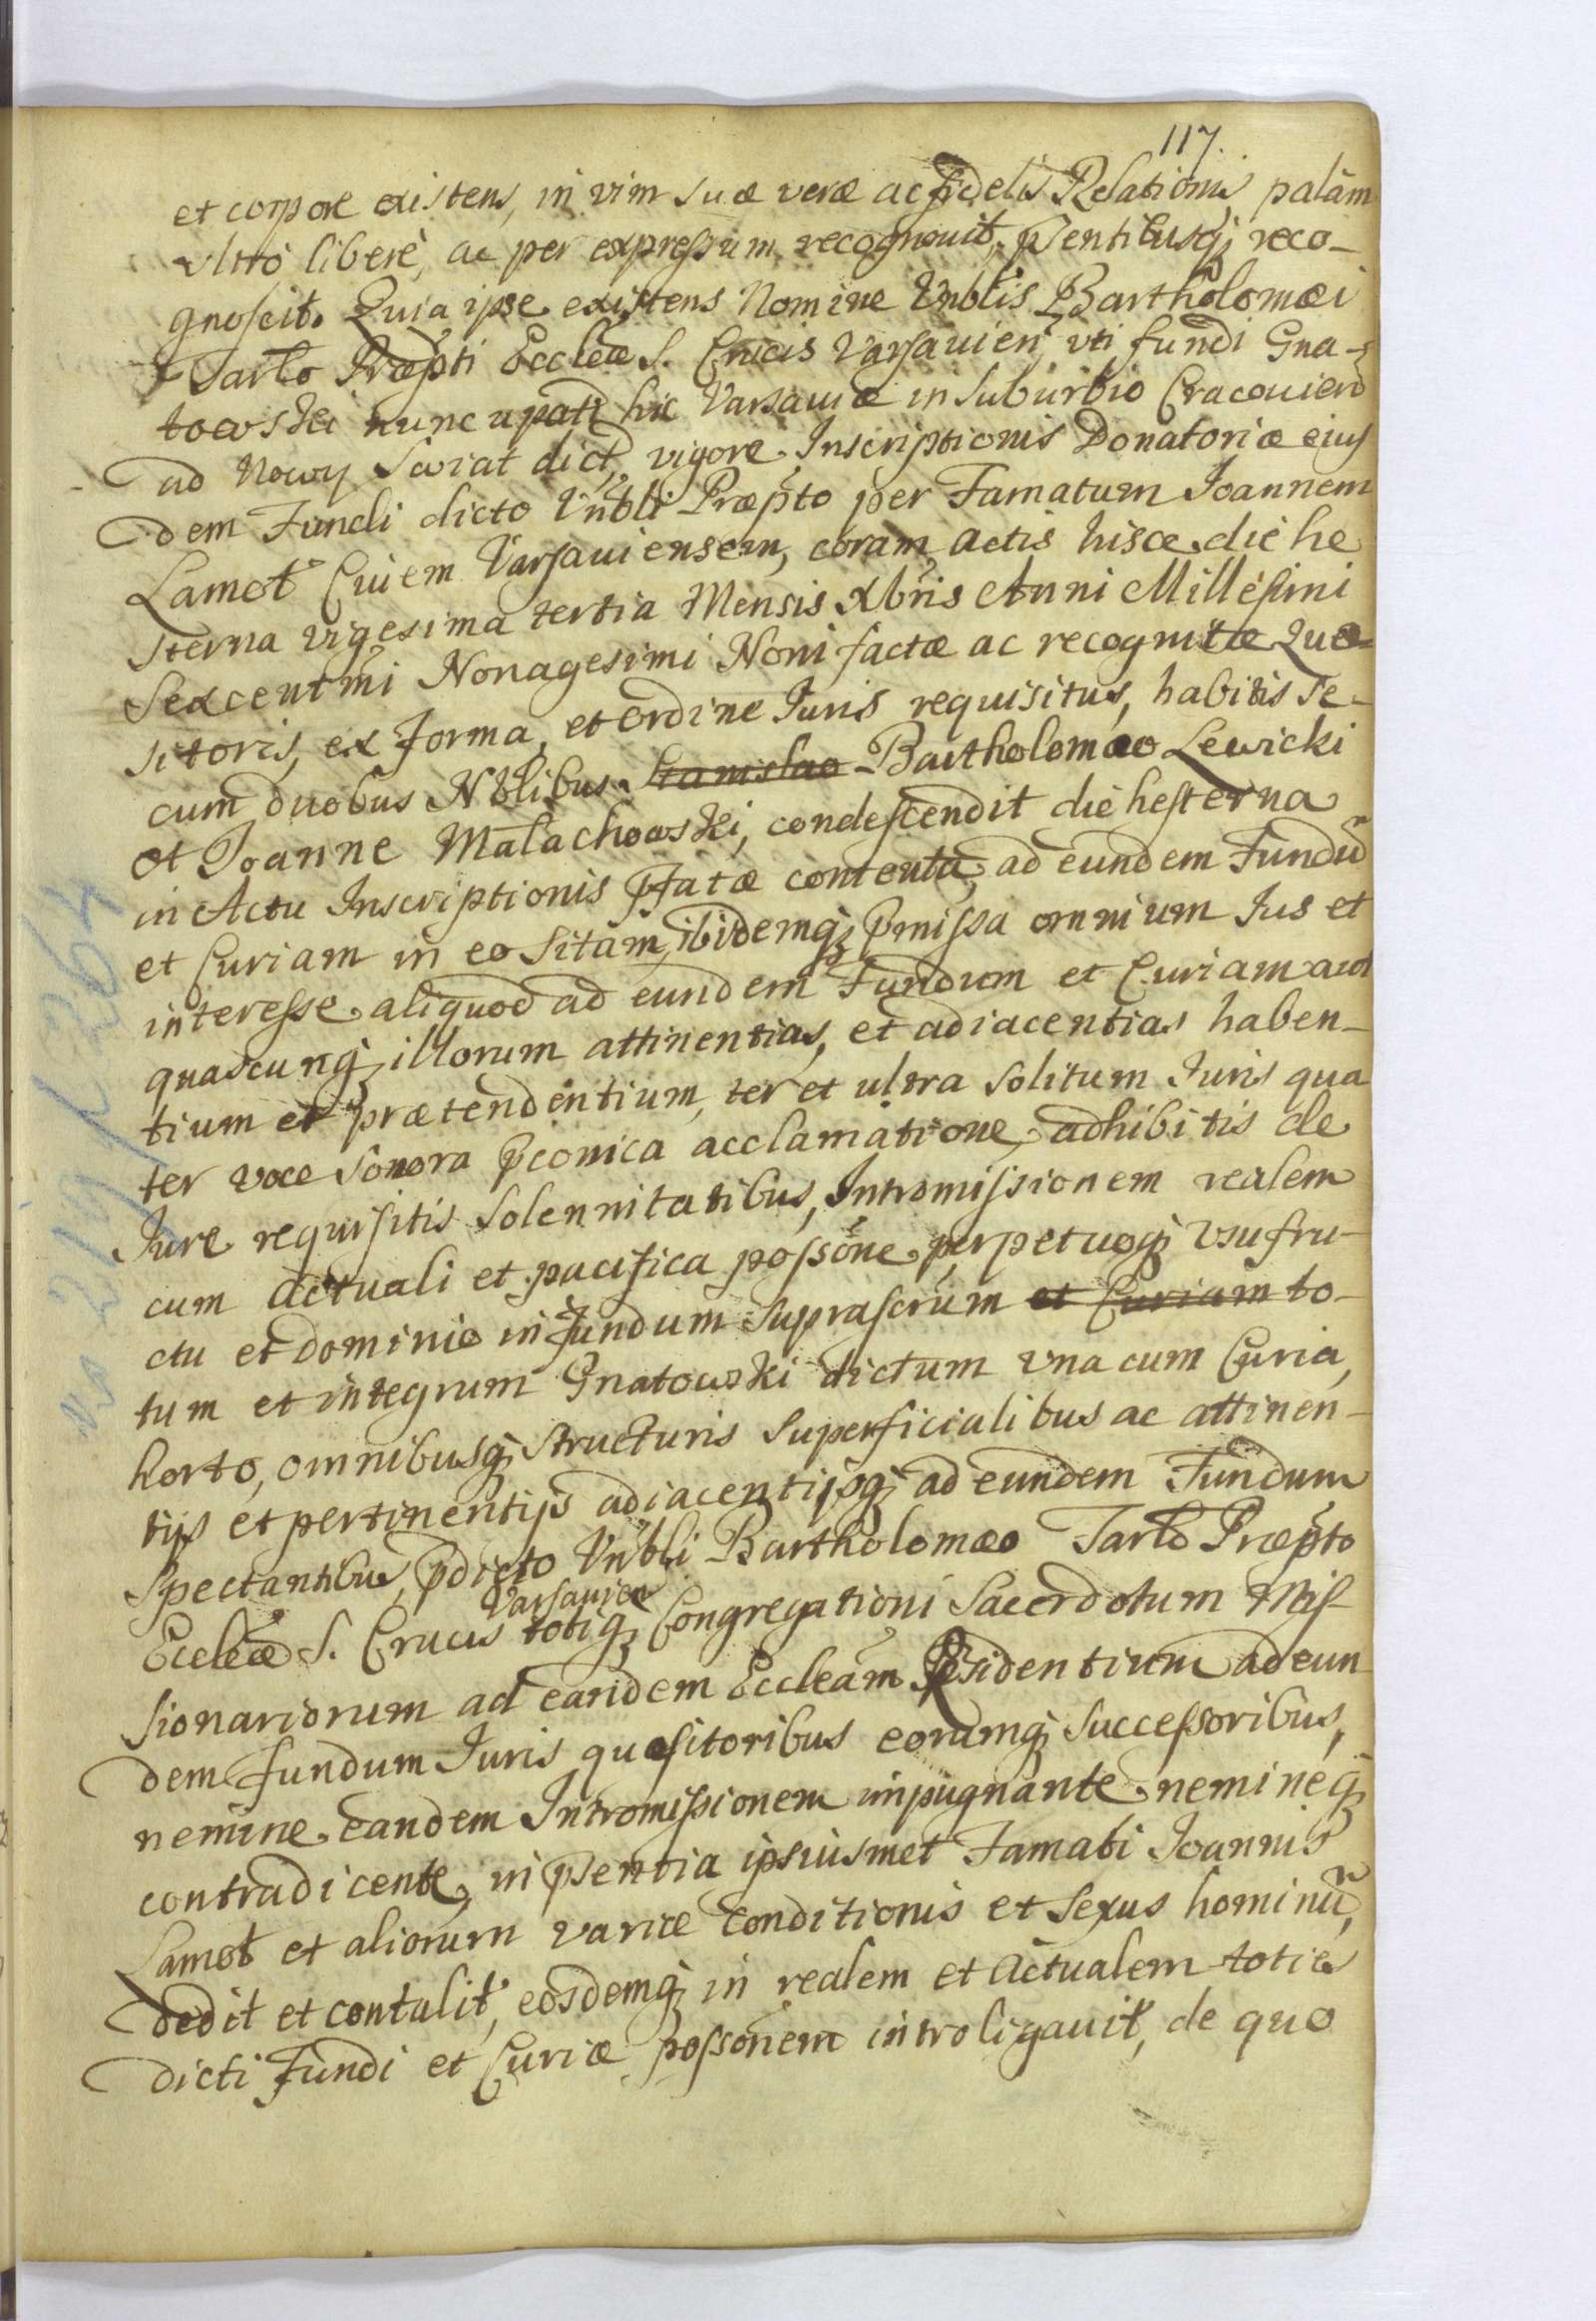 117.
et corpore existens, in vim suæ veræ ac fidelis Relationis palàm
vltrò liberè, ac per expressum recognouit, p̃sentibusq; reco-
gnoscit. Quia ipse existens Nomine Vnblis Bartholomæi
Tarło Præpti Eccleæ S. Crucis Varsauien̄ vti fundi Gna-
towski nuncupati hic Varsauiæ in suburbio Cracouien
ad Nowy Swiat dict, vigore Inscriptionis Donatoriæ eius
dem Fundi dicto Vnbli Præpto per Famatum Joannem
Lamet Ciuem Varsauiensem, coram actis hisce die he
sterna vigesima tertia Mensis Xbris Anni Millesimi
Sexcentmi Nonagesimi Noni factæ ac recognitæ Quæ-
sitoris, ex forma, et ordine Iuris requisitus, habitis se-
cum duobus Nblibus Stanislao Bartholomæo Lewicki
et Joanne Małachowski, condescendit die hesterna
in Actu Inscriptionis p̃fatæ contenta, ad eundem Fundū
et Curiam in eo sitam, ibidemq; p̃missa omnium Ius et
interesse aliquod ad eundem Fundum et Curiam aut
quascunq; illorum attinentias, et adiacentias haben-
tium et prætendentium, ter et ultra solitum Iuris qua
ter voce sonora p̃conica acclamatione, adhibitis de
Iure requisitis solennitatibus, Intromissionem realem
cum actuali et pacifica possōne perpetuoq; vsufru-
ctu et dominio in Fundum suprascrūm et Curiam to-
tum et integrum Gnatowski dictum vna cum Curia,
horto, omnibusq; structuris superficialibus ac attinen-
tijs et pertinentijs adiacentijsq; ad eundem Fundum
Spectantibus, p̃dicto Vnbli Bartholomæo Tarło Præpto
Varsauien
Eccleæ S. Crucis totiq; Congregationi Sacerdotum Mis-
sionariorum ad eandem Eccleam Residentium ad eun
dem fundum Iuris quæsitoribus eorumq; successoribus,
nemine eandem Intromissionem impugnante nemineq;
contradicente, in p̃sentia ipsiusmet Famati Joannis
Lamet et aliorum variæ conditionis et sexus hominū,
dedit et contulit, eosdemq; in realem et actualem toties
dicti Fundi et Curiæ possōnem introligauit, de quo